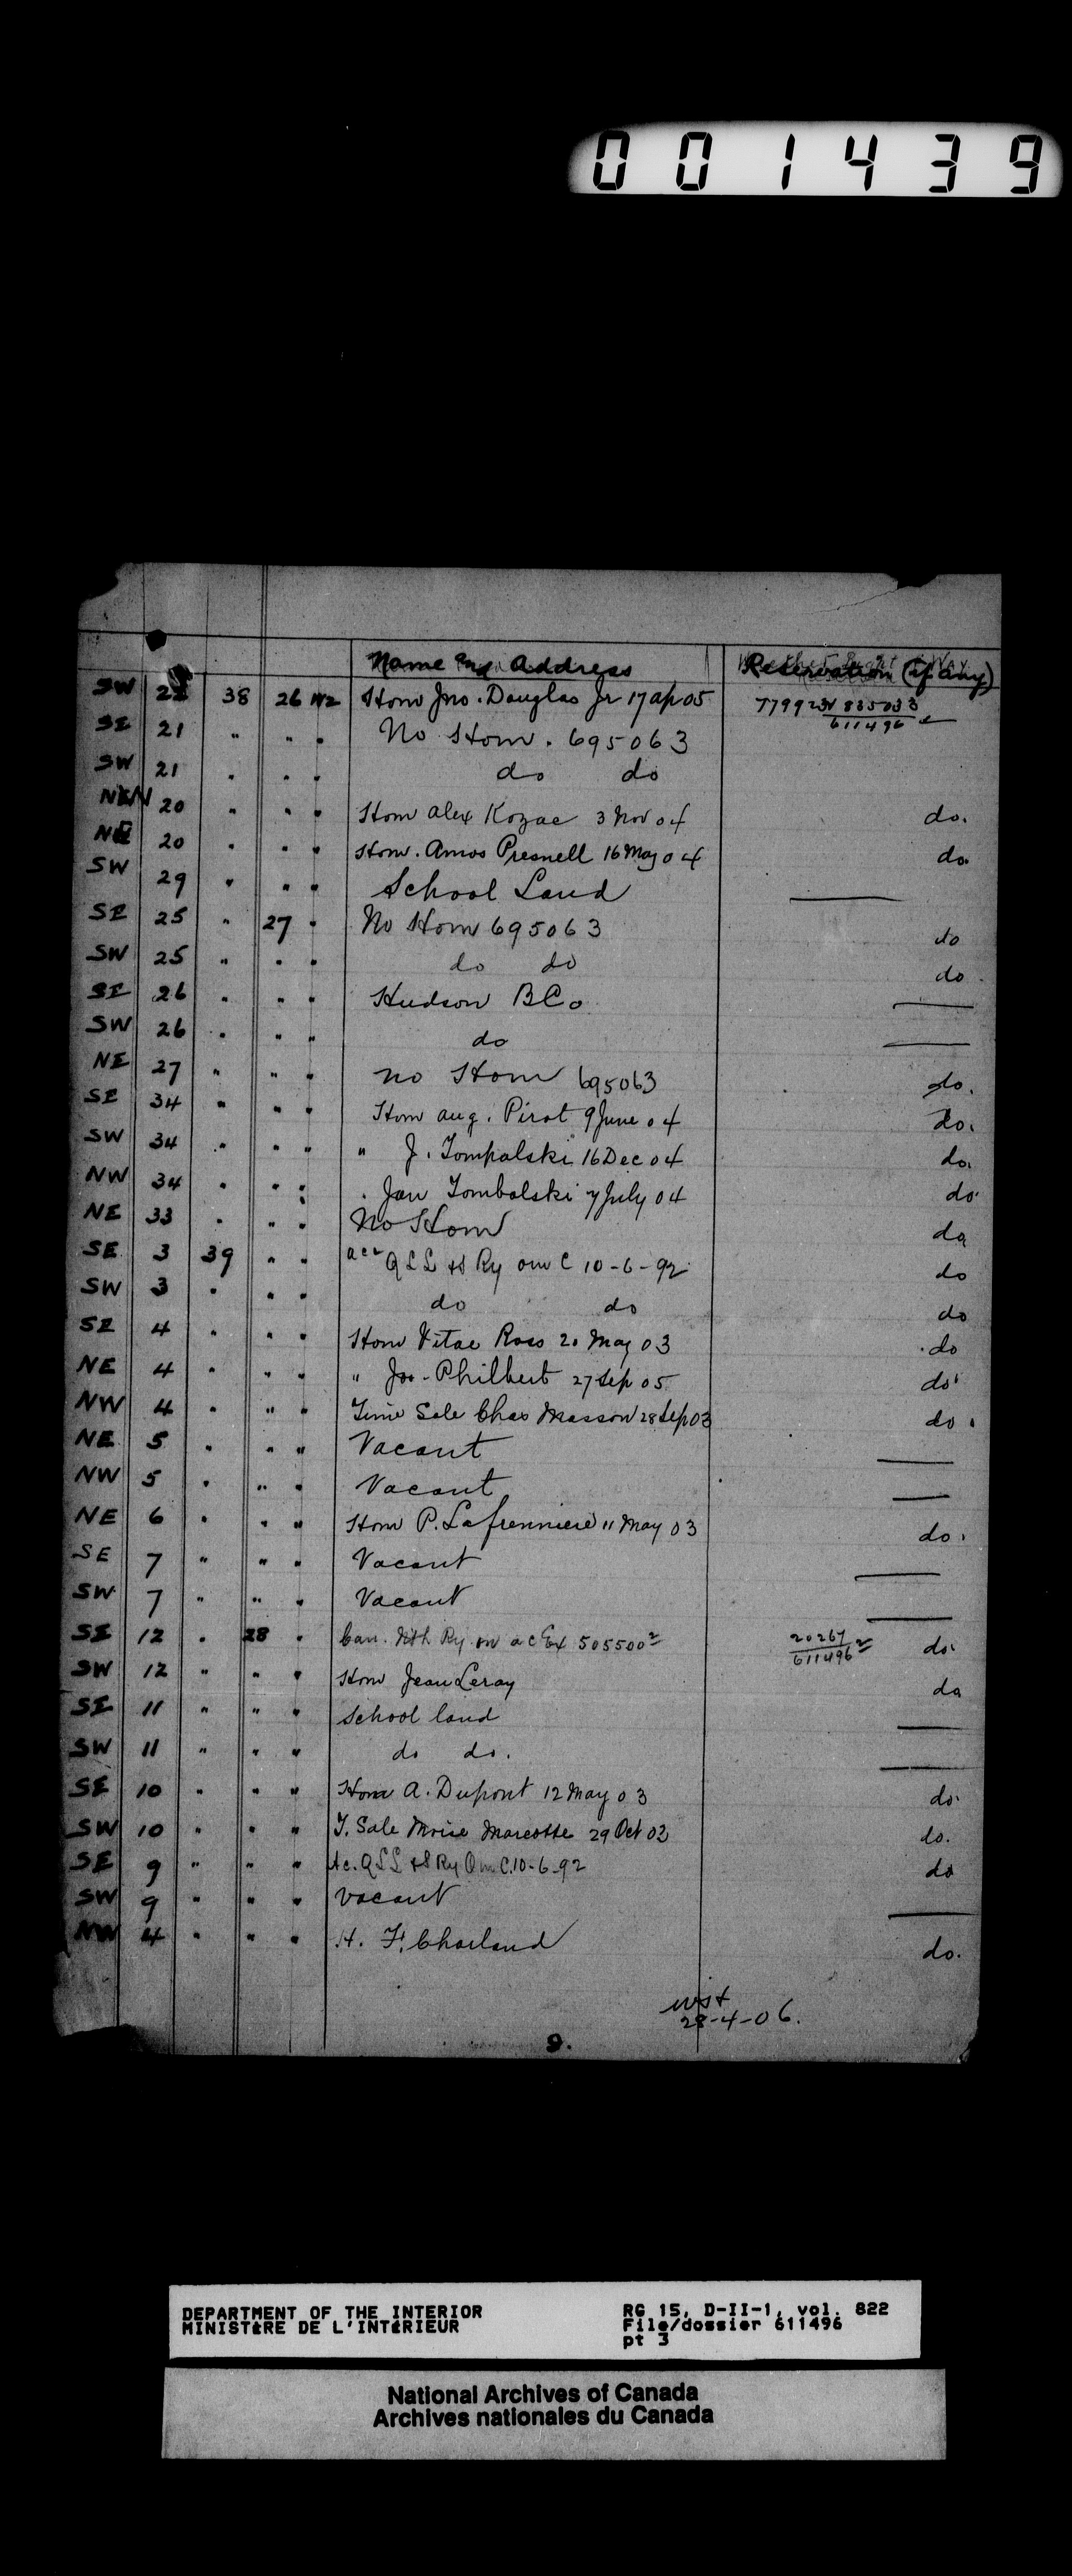 001439
Name and Address Reservation (if any)
SW 22 38 26 W2 Hom Jno. Douglas Jr 17 ap 05
611496
SE 21 " " " No Hom. 695063
SW 21 " " " do do
20 " " " Hom Alex Kozac 3 Nov 04 do.
NE 20 " " " Hom. Amos Presnell 16 May 04 do
SW 29 " " " School Land —
SE 25 " 27 " No Hom 695063 do
SW 25 " " " do do do
SE 26 " " " Hudson B Co. —
SW 26 " " " do —
NE 27 " " " no Hom 695063 do.
SE 34 " " " Hom aug. Pirot 9 June 04 do.
SW 34 " " " " J. Tompalski 16 Dec 04 do.
NW 34 " " " " Jan Tombolski 7 July 04 do
NE 33 " " " No Hom do
SE 3 39 " " Q L L & S Ry om C 10-6-92 do
SW 3 " " " do do do
SE 4 " " " Hom Vitae Ross 20 May 03 do
NE 4 " " " " Jos. Philbert 27 Sep 05 do
NW 4 " " " Time Sale Chas Masson 28 Sep 03 do.
NE 5 " " " Vacant —
NW 5 " " " Vacant —
NE 6 " " " Hom P. Lafrenniere 11 May 03 do.
SE 7 " " " Vacant —
SW 7 " " " Vacant —
SE 12 " 28 " Can. Nth Ry 505500² 20267 do
611496²
SW 12 " " " Hom Jean Leray do
SE 11 " " " School land —
SW 11 " " " do do. —
SE 10 " " " Hom A. Dupont 12 May 03 do
SW 10 " " " T. Sale Moise Marcotte 29 Oct 03 do.
SE 9 " " " Ac. Q L L & S Ry Om C. 10-6-92 do
SW 9 " " " vacant —
NW 4 " " " H. F. Charland do.
28-4-06.
9.
DEPARTMENT OF THE INTERIOR RG 15, D-II-1, vol. 822
MINISTÈRE DE L'INTÉRIEUR File/dossier 611496
pt 3
National Archives of Canada
Archives nationales du Canada